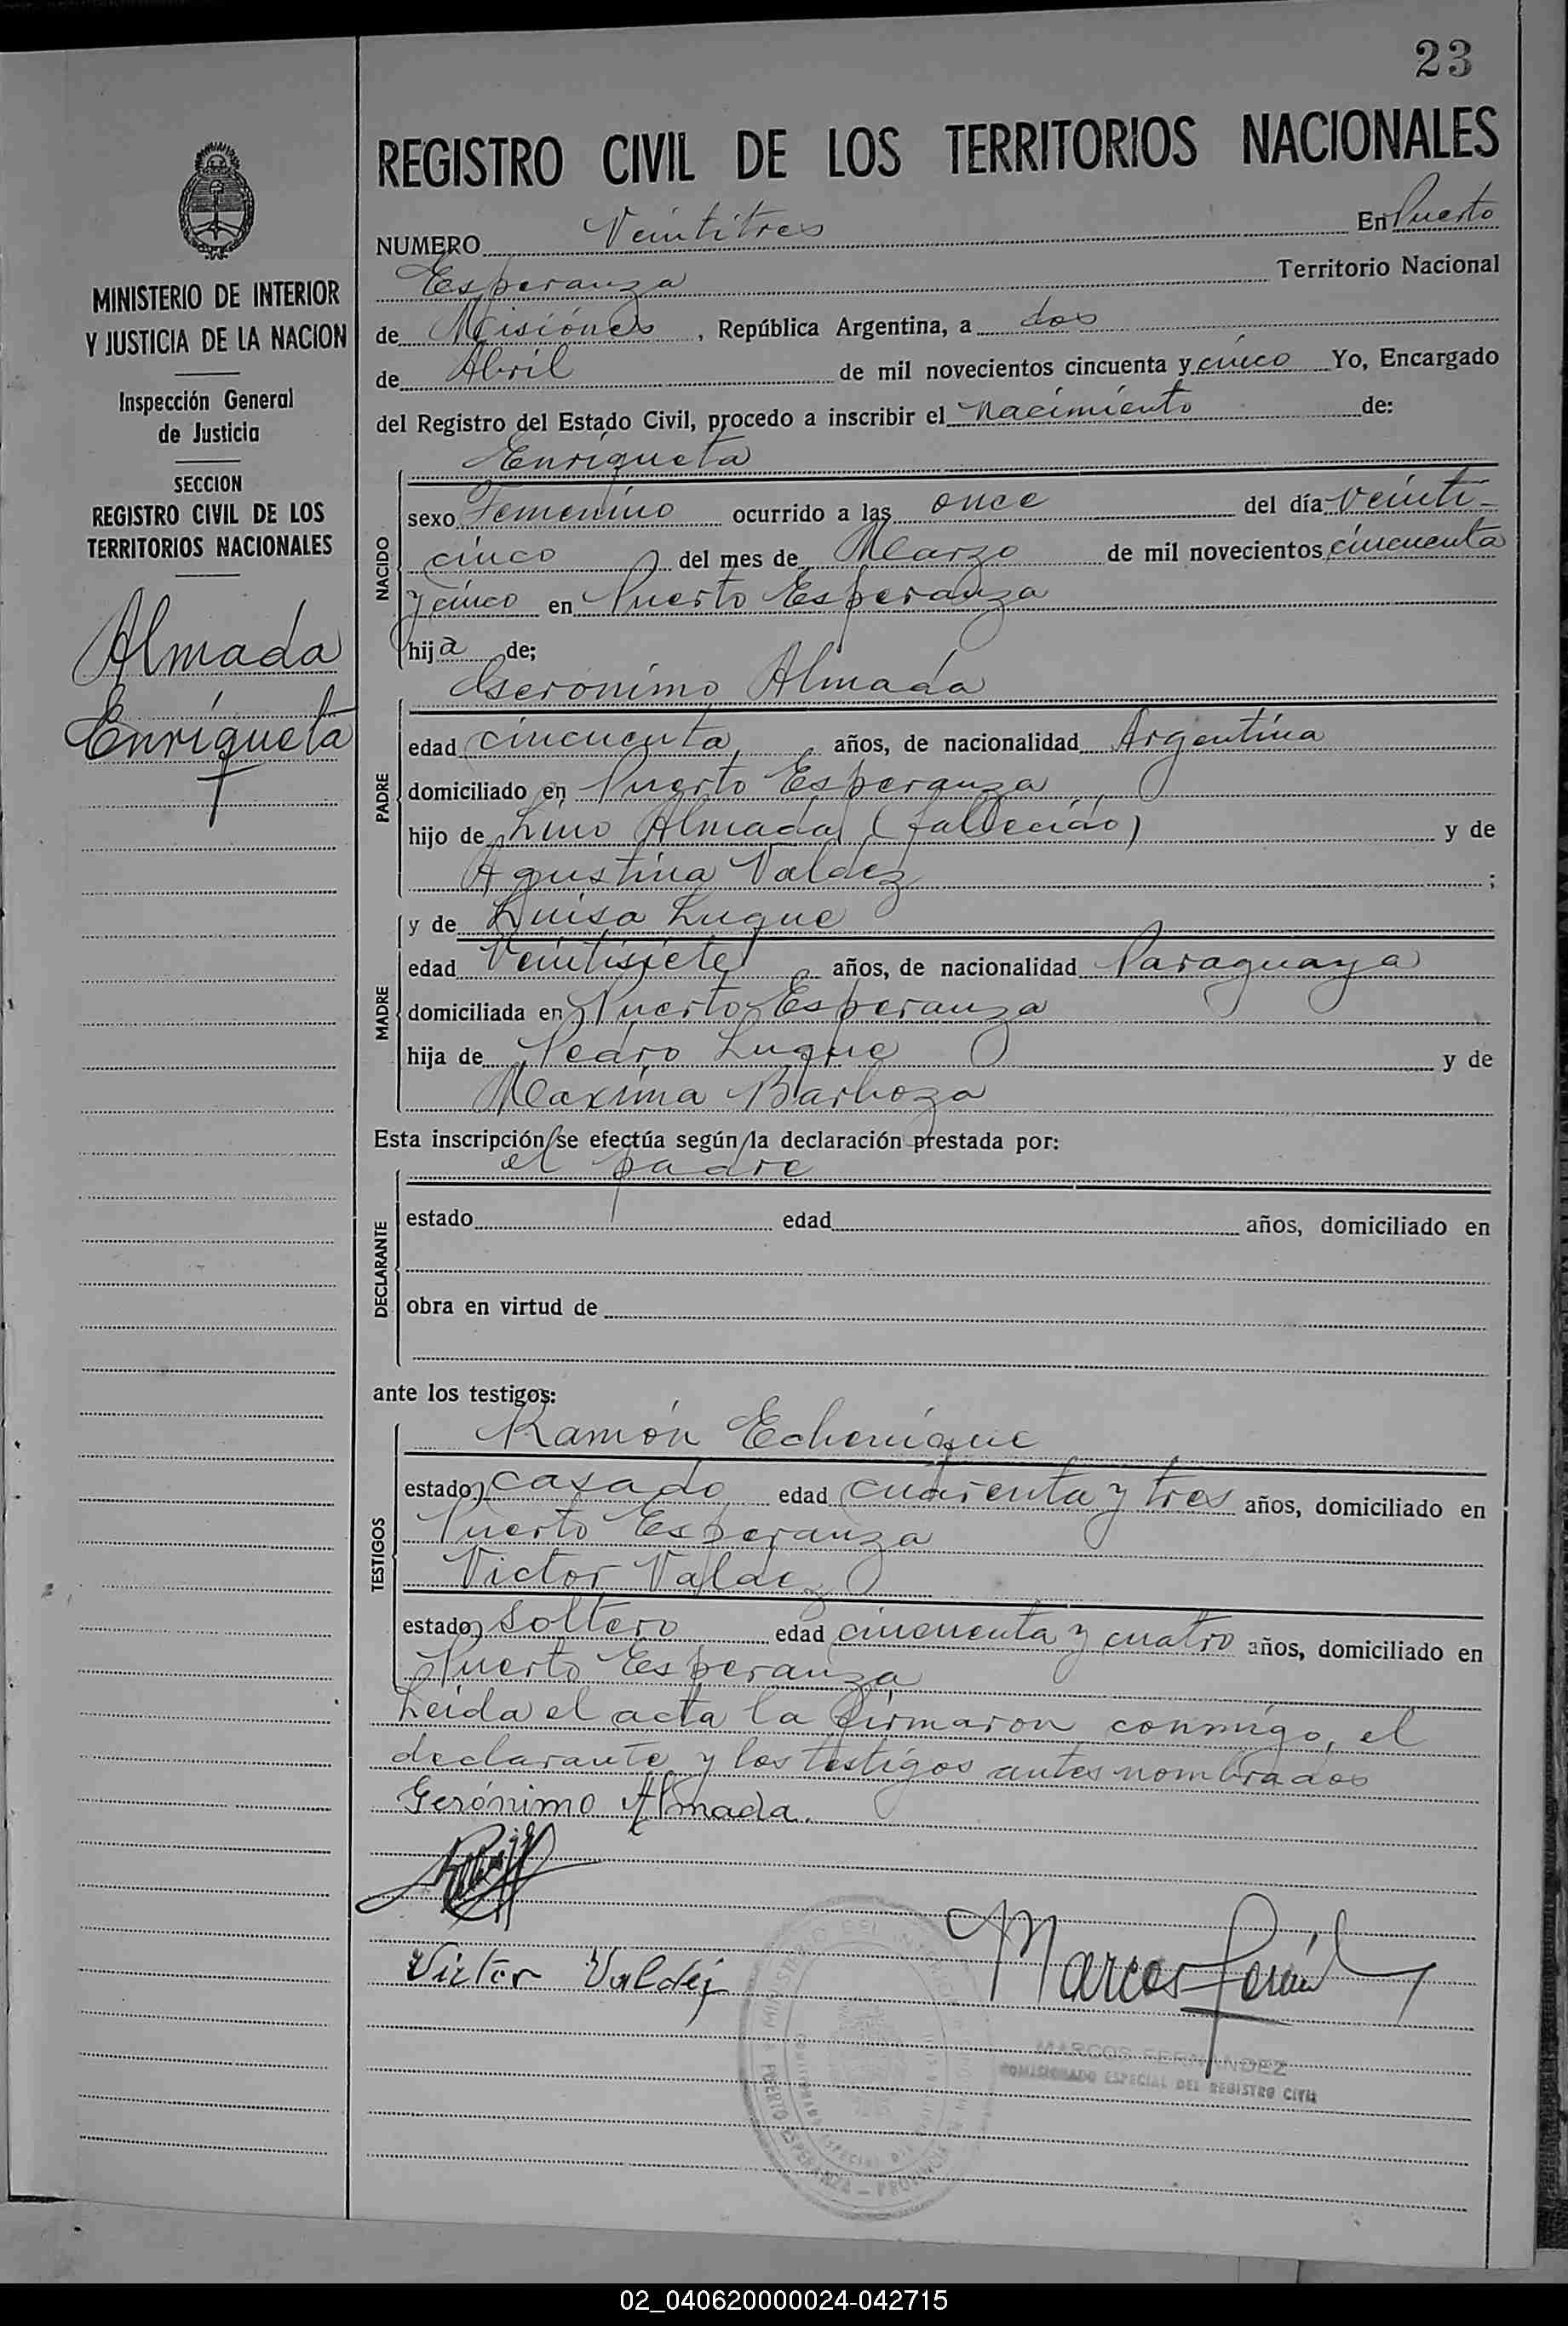 23
REGISTRO CIVIL DE LOS TERRITORIOS NACIONALES
MINISTERIO DE INTERIOR
Y JUSTICIA DE LA NACION
Inspección General
de Justicia
SECCION
REGISTRO CIVIL DE LOS
TERRITORIOS NACIONALES
Almada
Enriqueta
NUMERO Veintitres En Puerto
Esperanza Territorio Nacional
de Misiónes, República Argentina, a dos
de Abril de mil novecientos cincuenta y cinco Yo, Encargado
del Registro del Estado Civil, procedo a inscribir el nacimiento de:
NACIDO
Enriqueta
sexo Femenino ocurrido a las once del día veinti-
cinco del mes de Marzo de mil novecientos cincuenta
y cinco en Puerto Esperanza
hija de;
PADRE
Gerónimo Almada
edad cincuenta años, de nacionalidad Argentina
domiciliado en Puerto Esperanza
hijo de Lino Almada (fallecido) y de
Agustina Valdez ;
MADRE
y de Luisa Luque
edad Veintisiete años, de nacionalidad Paraguaya
domiciliada en Puerto Esperanza
hija de Pedro Luque y de
Maxima Barboza
Esta inscripción se efectúa según la declaración prestada por:
DECLARANTE
el padre
estado edad años, domiciliado en
obra en virtud de
ante los testigos:
TESTIGOS
Ramón Echenique
estado casado edad cuarenta y tres años, domiciliado en
Puerto Esperanza
Victor Valdez
estado soltero edad cincuenta y cuatro años, domiciliado en
Puerto Esperanza
Leida el acta la firmaron conmigo, el
declarante y los testigos antes nombrados
Gerónimo Almada.
Victor Valdez
Marcos
MARCOS FERNANDEZ
COMISIONADO ESPECIAL DEL REGISTRO CIVIL
MINISTERIO DEL INTERIOR
PUERTO ESPERANZA - PROVINCIA
02_040620000024-042715